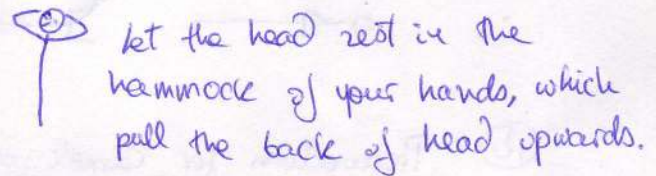 let the head rest in the
hammock of your hands, which
pull the back of head upwards.